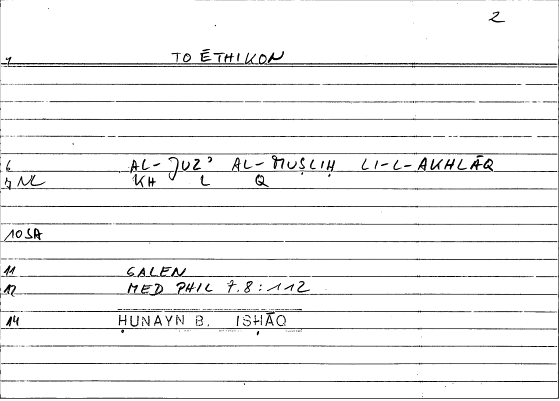 2
1 TO ĒTHIKON
6 AL-JUZʾ AL-MUṢLIḤ LI-L-AKHLĀQ
7 NL KH L Q
10 SA
11 GALEN
12 MED PHIL 7.8:112
14 ḤUNAYN B. ISḤĀQ